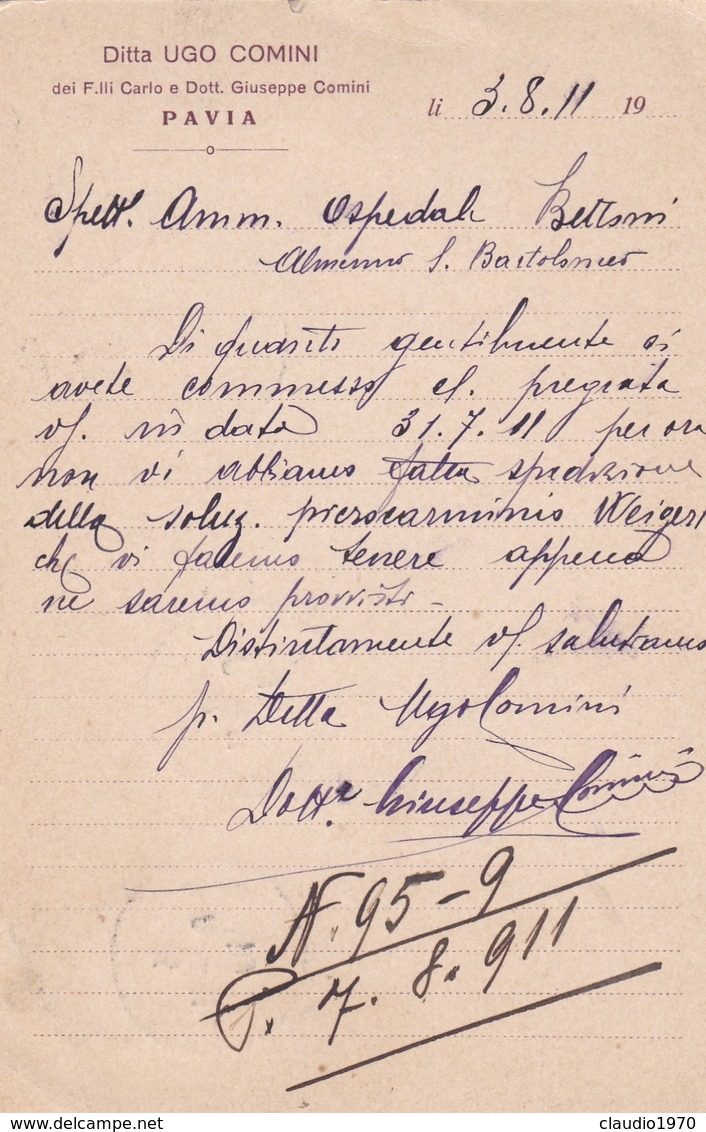 Ditta UGO COMINI
dei F.lli Carlo e Dott. Giuseppe Comini
PAVIA
li 3.8.11 19
Spett. Amm. Ospedale Bettoni
Almenno S. Bartolomeo
Di quanto gentilmente ci
avete commesso c/. pregiata
v/. in data 31.7.11 per ora
non vi abbiamo fatta spedizione
della soluz. picrocarminio Weigert
che vi faremo tenere appena
ne saremo provvisti -
Distintamente v/. salutiamo
p. Ditta Ugo Comini
Dott.r Giuseppe Comini
N. 95-9
P. 7. 8. 911
Delcampe.net
claudio1970